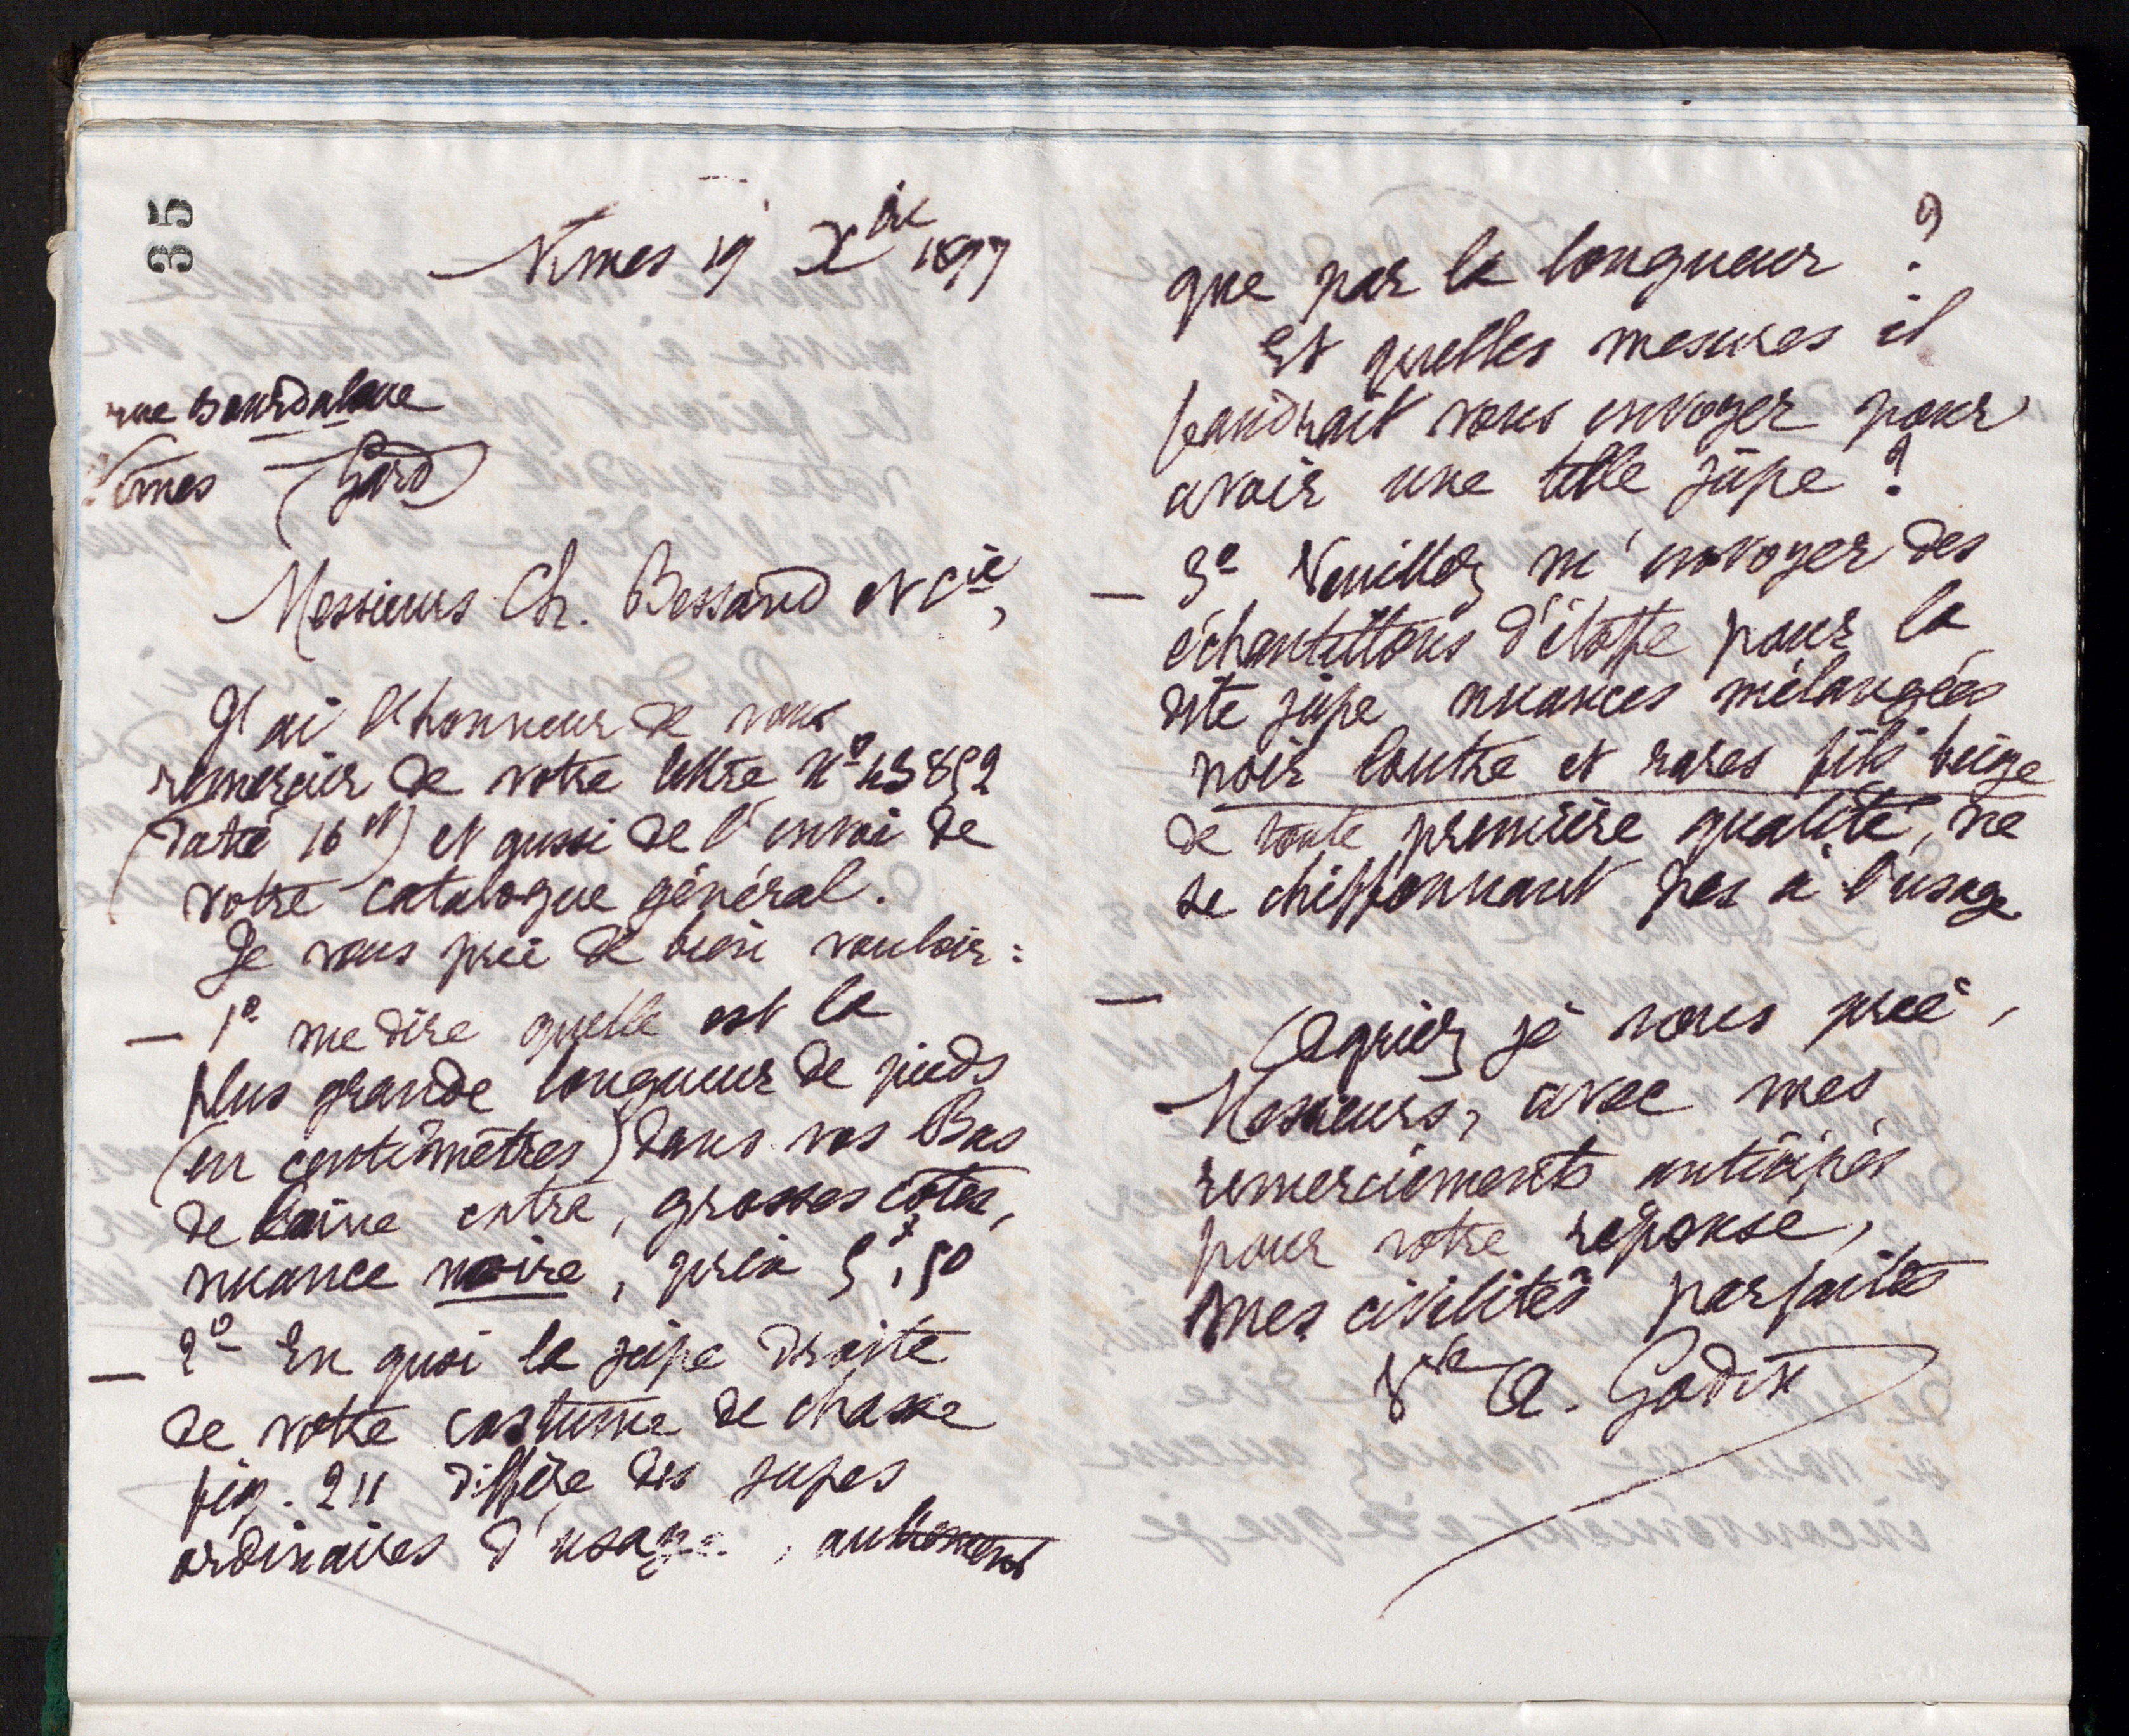 35
Nîmes 19 Xbre 1897
rue Bourdaloue
Nîmes (Gard)
Messieurs Ch. Bessand et Cie,
J'ai l'honneur de vous
remercier de votre lettre No 43852
(datée 16 ct) et aussi de l'envoi de
votre catalogue général.
Je vous prie de bien vouloir :
— 1o me dire quelle est la
plus grande longueur de pieds
(en centimètres) dans vos Bas
de laine extra, grosses côtes,
nuance noire, prix 5f,50
— 2o En quoi la jupe droite
de votre costume de chasse
fig. 211 diffère des jupes
ordinaires d'usage, autrement
que par la longueur ?
Et quelles mesures il
faudrait vous envoyer pour
avoir une telle jupe ?
— 3o Veuillez m'envoyer des
échantillons d'étoffe pour la
dite jupe nuances mélangées
noir loutre et rares fils beige
de toute première qualité, ne
se chiffonnant pas à l'usage
—
Agréez je vous prie,
Messieurs, avec mes
remerciements anticipés
pour votre réponse,
mes civilités parfaites
Vve A. Godin